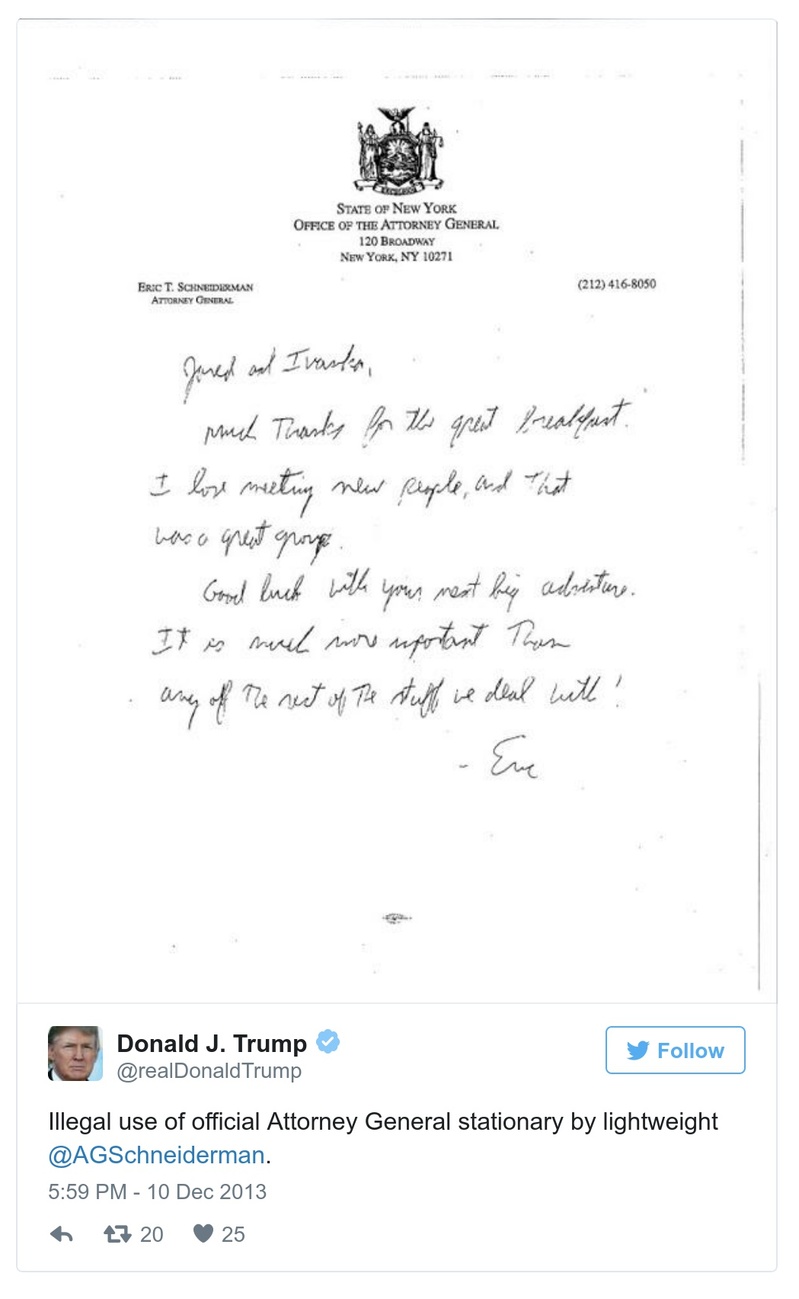 EXCELSIOR
STATE OF NEW YORK
OFFICE OF THE ATTORNEY GENERAL
120 BROADWAY
NEW YORK, NY 10271
ERIC T. SCHNEIDERMAN
ATTORNEY GENERAL
(212) 416-8050
Jared and Ivanka,
Much Thanks for the great breakfast.
I love meeting new people, and That
was a great group.
Good luck with your next big adventure.
It is much more important Than
any off The rest of The stuff we deal with!
- Eric
Donald J. Trump
@realDonaldTrump
Follow
Illegal use of official Attorney General stationary by lightweight
@AGSchneiderman.
5:59 PM - 10 Dec 2013
20 25